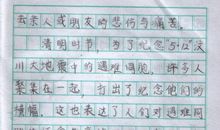 去亲人或朋友的悲伤与痛苦。
清明时节，为了纪念5·12汶
川大地震中的遇难同胞，许多人
聚集在一起，打出了纪念他们的
横幅。这也表达了人们对遇难同